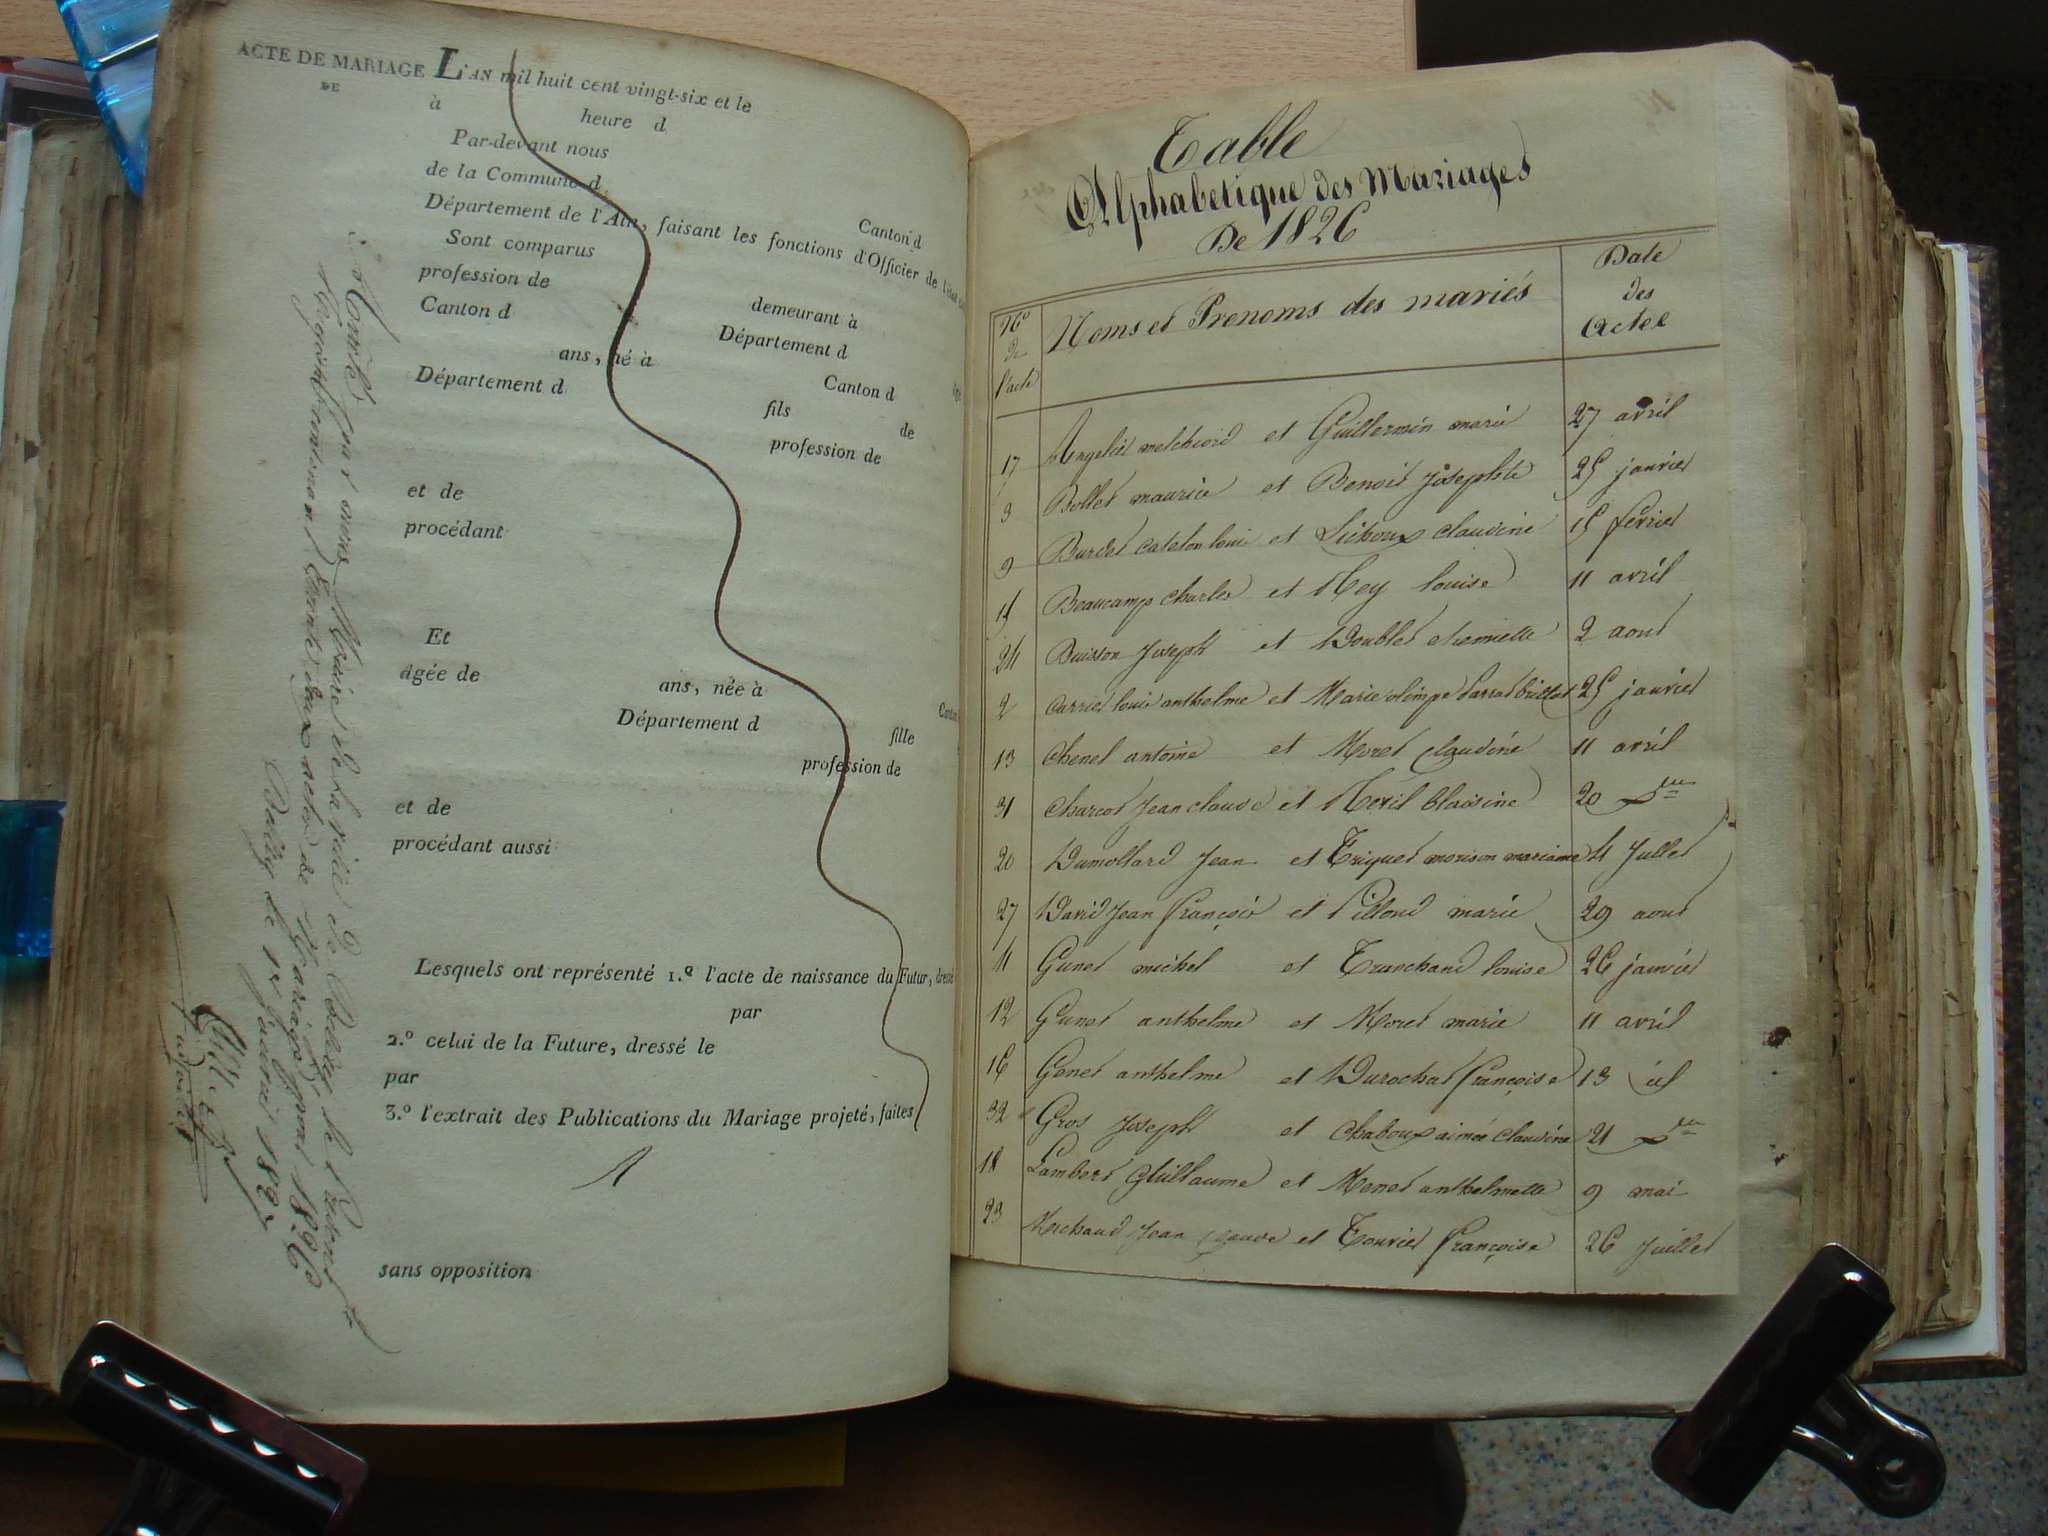 ACTE DE MARIAGE L'AN mil huit cent vingt-six et le
DE à heure d
Par-devant nous
de la Commune d Canton d
Département de l'Ain, faisant les fonctions d'Officier de l'état
Sont comparus
profession de demeurant à
Canton d Département d
ans, né à Canton d
Département d fils de
profession de
et de
procédant
Et
âgée de ans, née à
Département d fille
profession de
et de
procédant aussi
Lesquels ont représenté 1.º l'acte de naissance du Futur, dressé
par
2.º celui de la Future, dressé le
par
3.º l'extrait des Publications du Mariage projeté, faites
sans opposition
maire de la ville de Belley le
trente deux actes de mariage pour 1826
Belley le 1er janvier 1827
Table
Alphabetique des Mariages
De 1826
Nº de l'acte
Noms et Prenoms des mariés
Date des Actes
17 melchiord et Guillermin marie 27 avril
3 Bollet maurice et Benoit Josephte 25 janvier
9 Burdet Catelon louis et claudine 15 fevrier
Beaucamp Charles et Rey louise 11 avril
24 Buisson Joseph et Doublet 2 aout
2 Carrier louis anthelme et Marie olimpe 25 janvier
13 Chenel antoine et Moret Claudine 11 avril
31 Charcot Jean claude et Blaisine 20 Xbre
20 Dumollard Jean et Triquet morison 4 Jullet
27 David Jean françois et Pilloud marie 29 aout
Gunet michel et Tranchand louise 26 janvier
12 Gunet anthelme et Moret marie 11 avril
16 Genet anthelme et Durochat françoise 13 id
32 Gros Joseph et Chaboux aimée claudine 21 Xbre
18 Lambert Guillaume et Menet anthelmette 9 mai
23 Michaud Jean Claude et Tournier françoise 26 Juillet